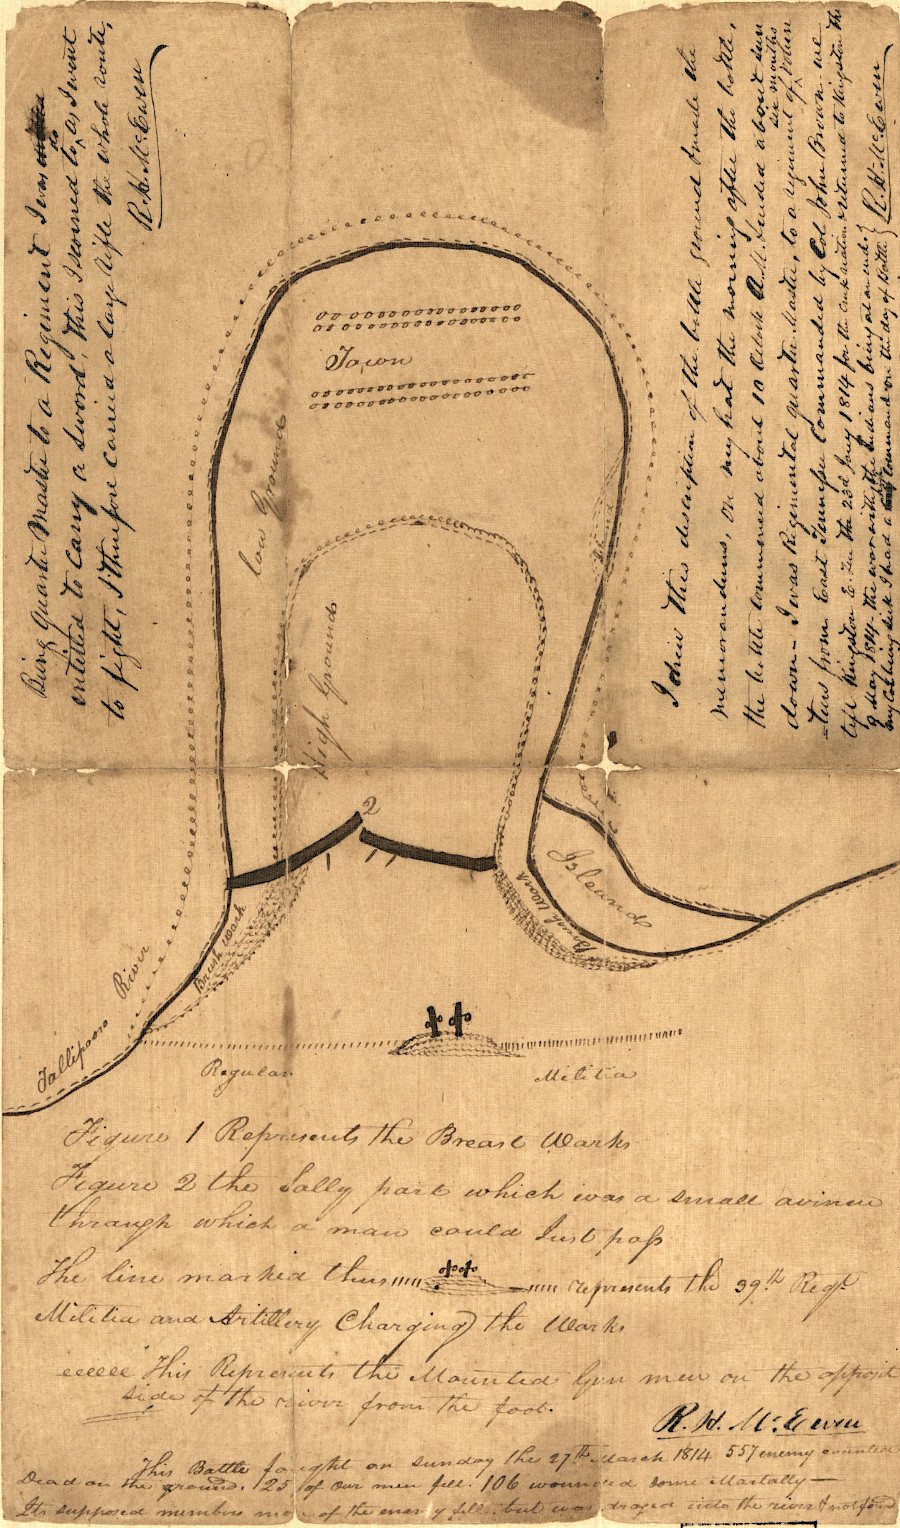 Being Quarter Master to a Regiment I was
entitled to Carry a Sword, this I scorned to do, as I went
to fight, I therefore carried a large rifle the whole route,
R. H. McEwen
I drew this description of the battle ground & made the
memorandums, on my hat the morning after the battle,
the battle commenced about 10 Oclock A.M. Ended about sun
down - I was Regimental quarter Master, to a regiment of six months Volun
-teers from East Tennessee Commanded by Col John Brown we
left Kingston E. Ten the 23d Jany 1814 for the & returned to Kingston the
9 May 1814 - the war with the Indians being at an end.
my Col being sick I had command on the day of Battle
R. H. McEwen
Town
Low Ground
High Ground
2
1
Island
Brush Work
Brush Work
Tallipoosa River
Regular
Militia
Figure 1 Represents the Breast Works
Figure 2 the Sally part which was a small avinue
through which a man could Just pass
The line marked thus represents the 39th Regt
Militia and Artillery Charging the Works
eeeeee This Represents the Mounted Gun men on the opposit
side of the river from the foot.
R. H. McEwen
This Battle fought on sunday the 27th March 1814 557 enemy counted
Dead on the ground. 25 of our men fell. 106 wounded some Mortally —
Its supposed more of the enemy fell. but was draged into the river & not found